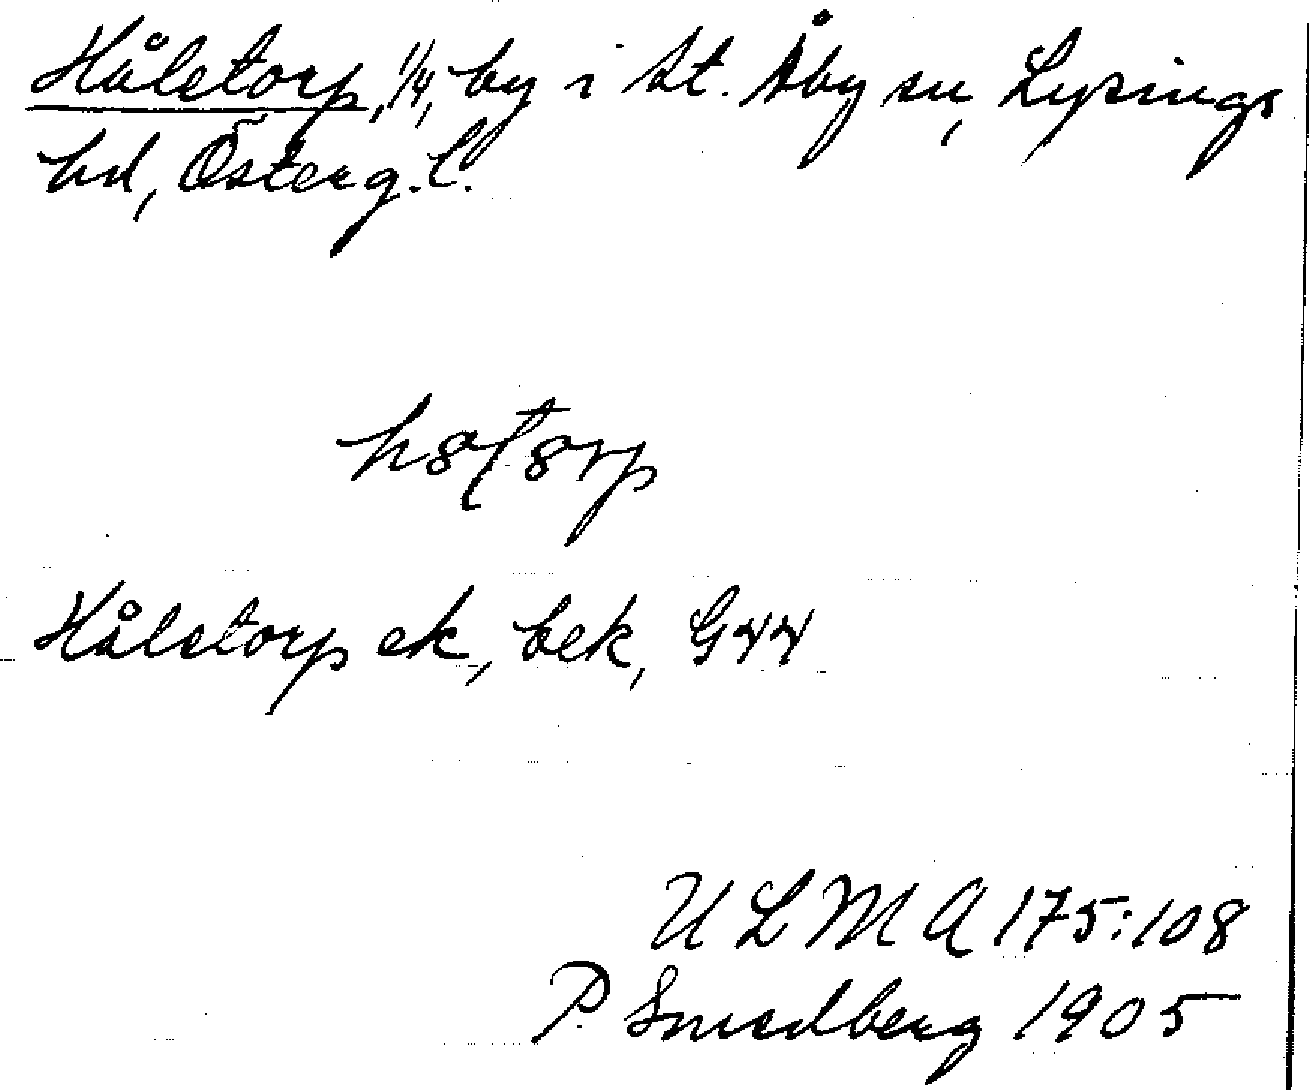 Håletorp, 1/4, by i St. Åby sn, Lysings
hd, Österg. l.
Håletorp ek, bek, G44
U L M A 175:108
P. Smedberg 1905